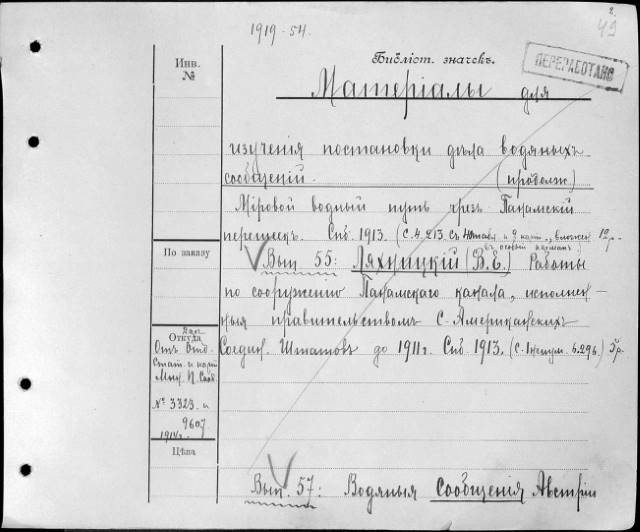 2.
49
1919-54.
ПЕРЕРАБОТАНО
Инв.
№
Библіот. значекъ.
Матеріалы для
изученія постановки дѣла водяныхъ
сообщеній. (продолж)
Міровой водный путь чрезъ Панамскій
перешеек. Спб. 1913. (С. 4. 213. съ 12р.
в особый карман)
По заказу
Вып 55: Ляхницкій (В.Е.) Работы
по сооруженію Панамскаго канала, исполнен-
ныя правительствомъ С-Американскихъ
Соедин. Штатовъ до 1911г. Спб. 1913. 5р.
Откуда
Отъ Отд.
Стат. и карт
Мин. П. Сооб.
№ 3323 и
9607
1914г.
Цѣна
Вып. 57: Водяныя Сообщенія Австріи